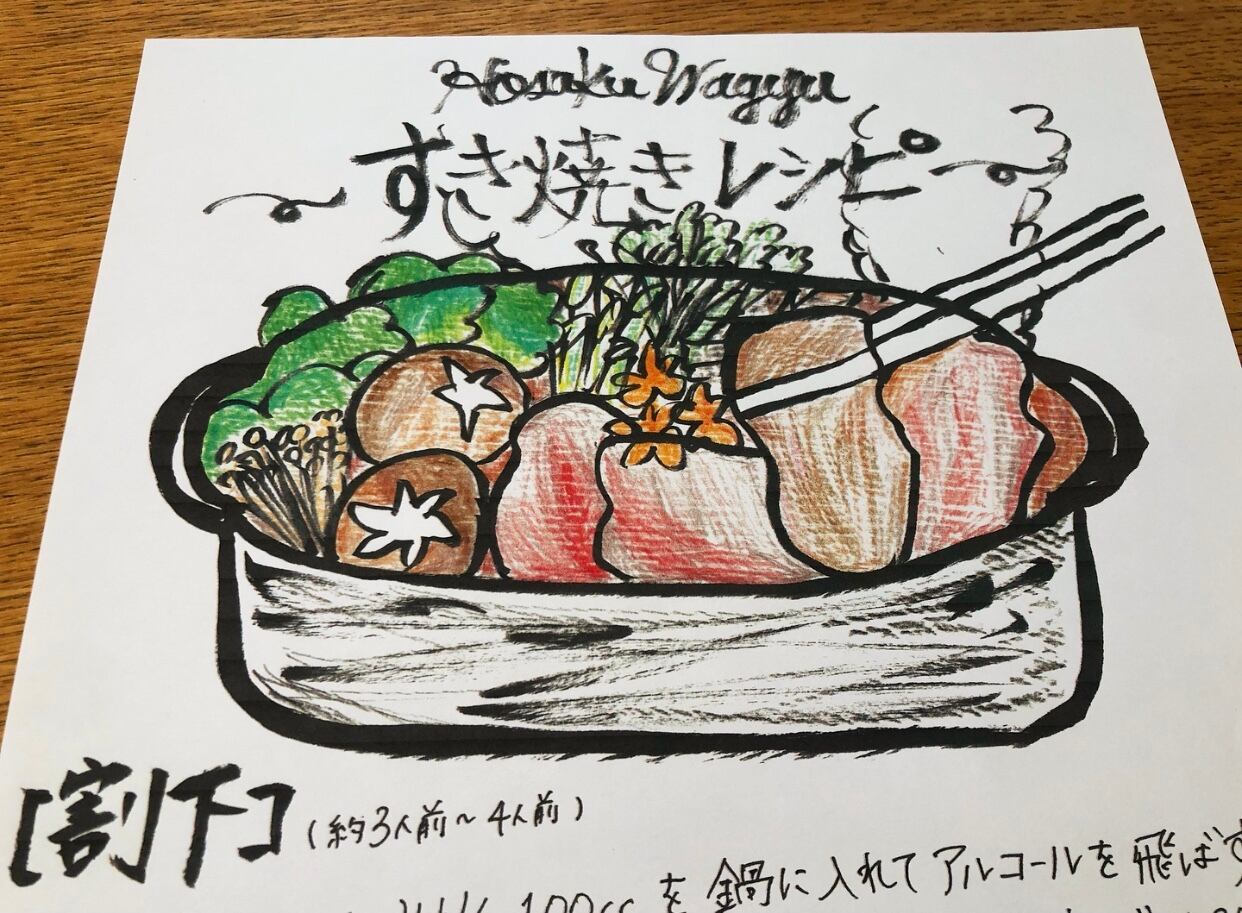 Hosaku Wagyu
すき焼きレシピ
[割下](約3人前〜4人前)
100cc を鍋に入れてアルコールを飛ばす